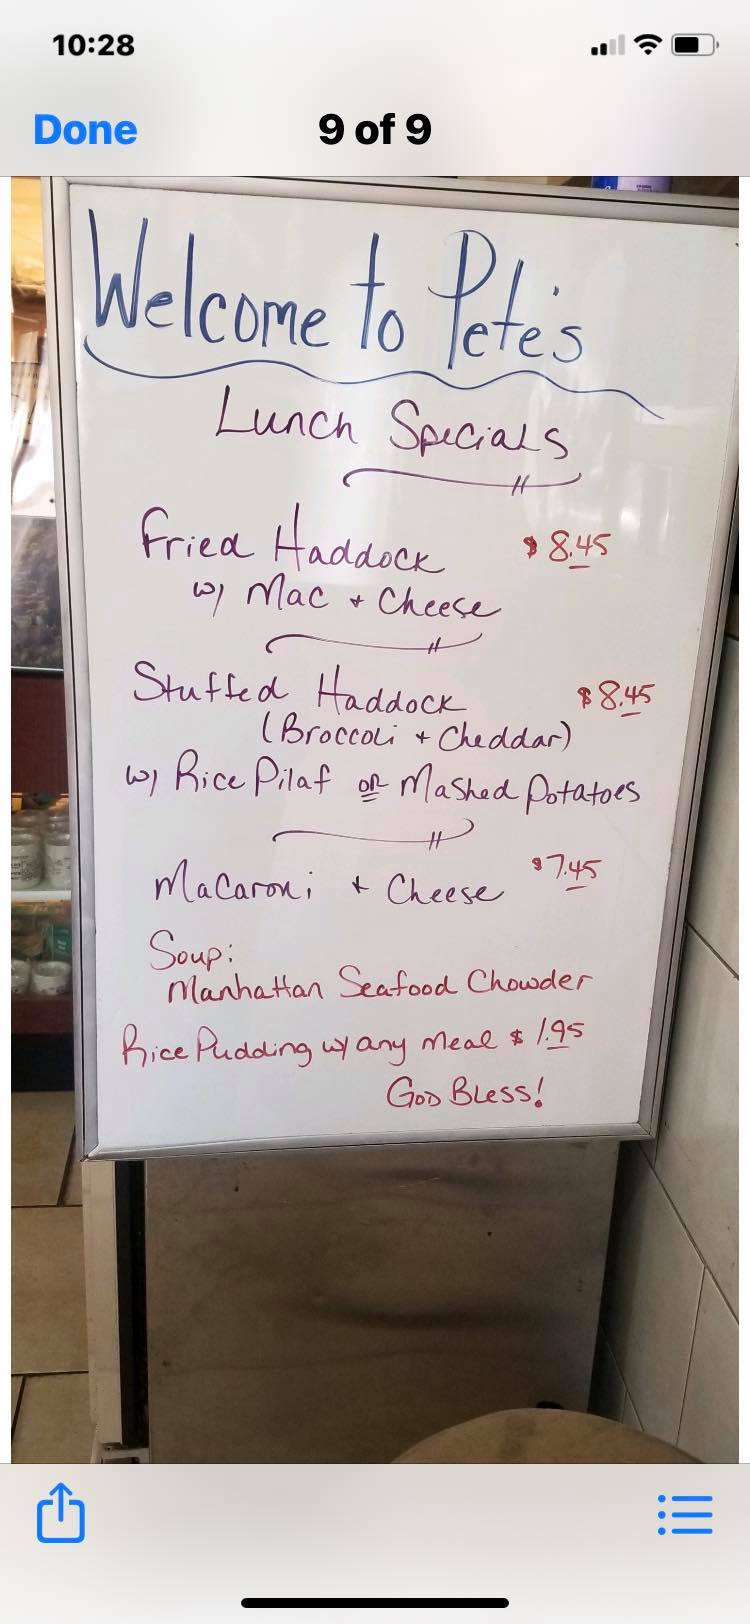 10:28
Done
9 of 9
Welcome to Pete's
Lunch Specials
Fried Haddock $8.45
w/ Mac + Cheese
Stuffed Haddock $8.45
(Broccoli + Cheddar)
w/ Rice Pilaf or Mashed Potatoes
Macaroni + Cheese $7.45
Soup:
Manhattan Seafood Chowder
Rice Pudding w/ any meal $1.95
God Bless!